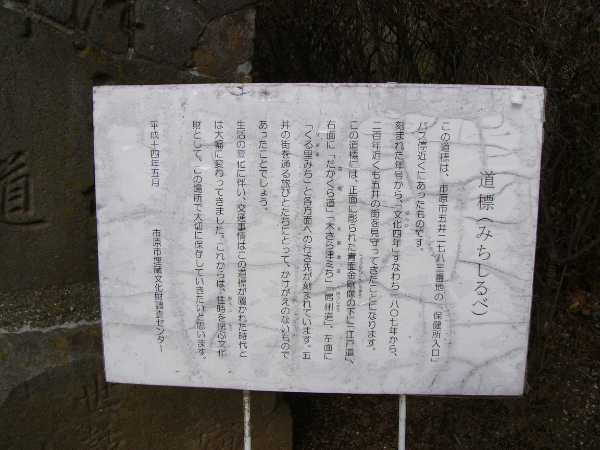 道標(みちしるべ)
この道標は、市原市五井二七八三番地の「保健所入口」
バス停近くにあったものです。
刻まれた年号から、「文化四年」すなわち一八〇七年から、
二百年近くも五井の街を見守ってきたことになります。
この道標には、正面に彫られた青面金剛像の下に「江戸道」、
右面に「たかくら道」「木さら津ミち」「房州道」、左面に
「くる里みち」と各方面への行き先が刻まれています。五
井の街を通る旅びとたちにとって、かけがえのないもので
あったことでしょう。
生活の変化に伴い、交通事情はこの道標が置かれた時代と
は大幅に変わってきました。これからは、往時を偲ぶ文化
財として、この場所で大切に保存していきたいと思います。
平成十四年五月
市原市埋蔵文化財調査センター
道